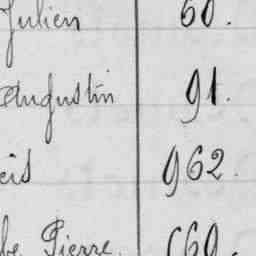 Julien 60.
Augustin 91.
cis 962.
be Pierre. 660.